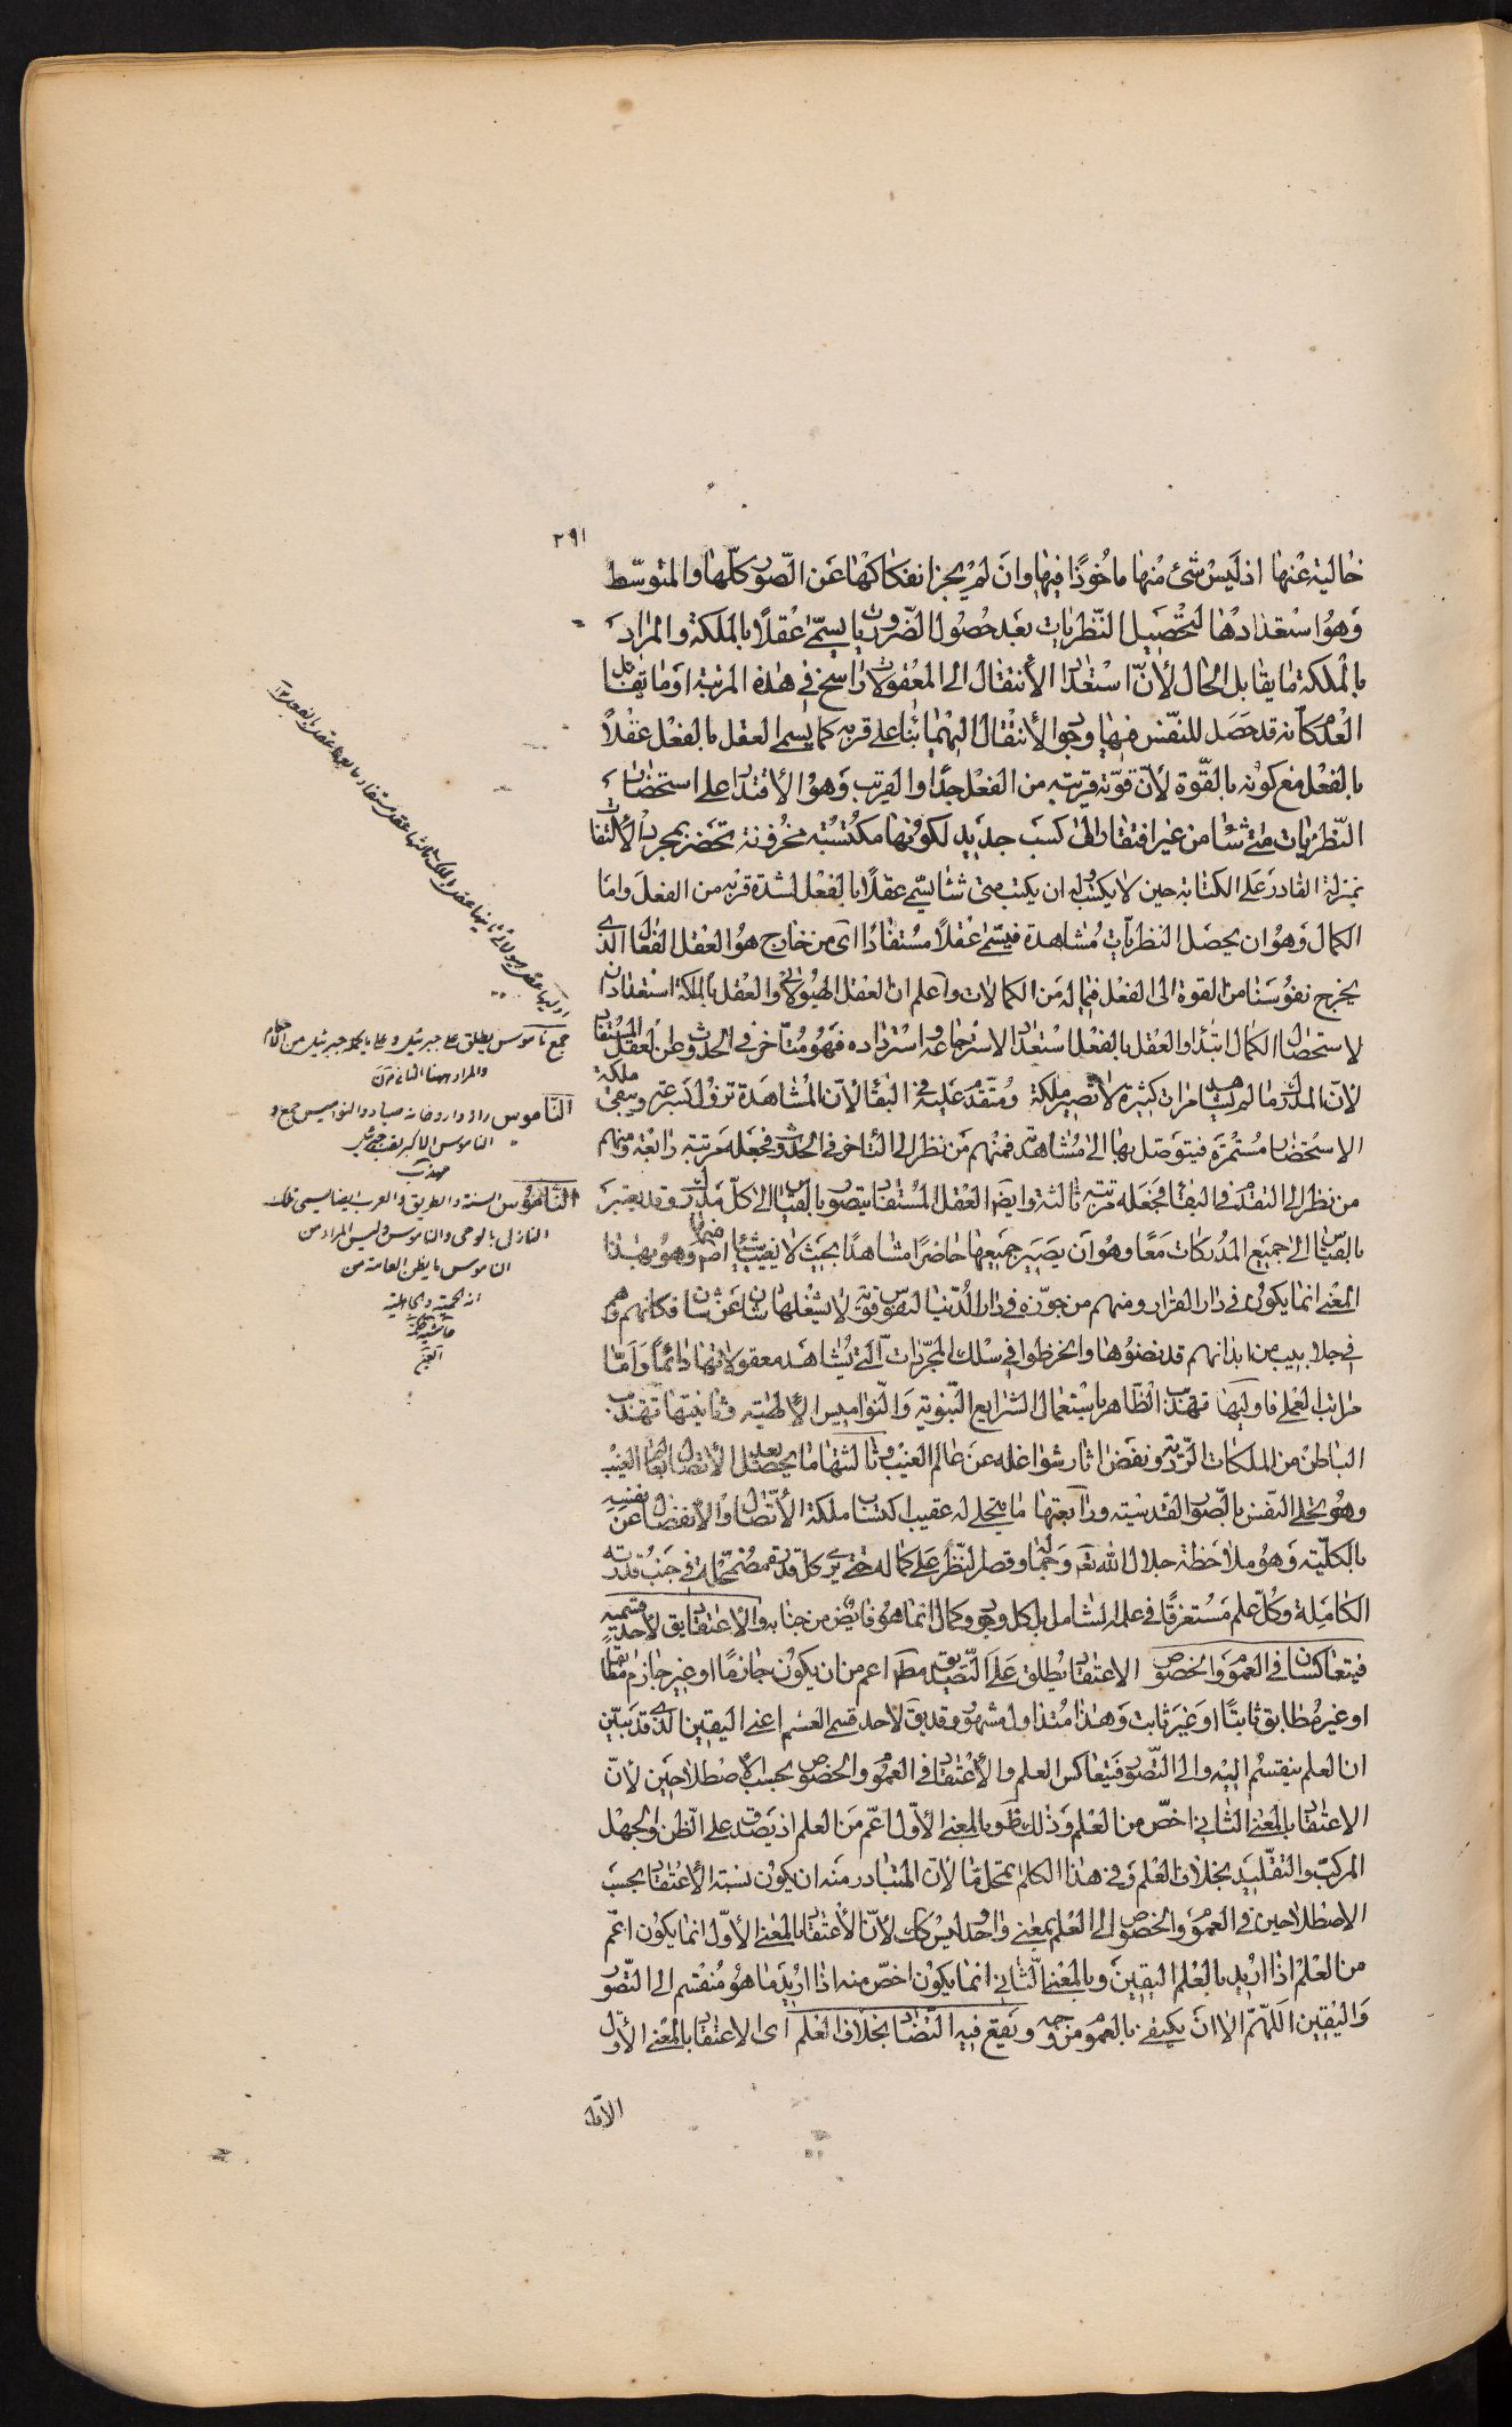 ٢٩١
خالية عنها اذ ليس شئ منها ماخوذا فيها وان لم يجز انفكاكها عن الصور كلها والمتوسط
وهو استعدادها لتحصيل النظريات بعد حصول الضروريات يسمى عقلا بالملكة والمراد
بالملكة ما يقابل الحال لأن استعداد الأنتقال الى المعقولات راسخ في هذه المرتبة او ما يقابل
العدم كأنه قد حصل للنفس فيها وجود الأنتقال اليهما بناء على قربه كما يسمى العقل بالفعل عقلاً
بالفعل مع كونه بالقوة لأن قوته قريبة من الفعل جدا والقريب وهو الأقتدار على استحضار
النظريات متى شاء من غير افتقار الى كسب جديد لكونها مكتسبة مخزونة تحضر بمجرد الألتفات
بمنزلة القادر على الكتابة حين لا يكتب وله ان يكتب متى شاء يسمى عقلاً بالفعل لشدة قربه من الفعل واما
الكمال وهو ان يحصل النظريات مشاهدة فيسمى عقلاً مستفادًا اى من خارج هو العقل الفعال الذى
يخرج نفوسنا من القوة الى الفعل فيما له من الكمالات واعلم ان العقل الهيولانى والعقل بالملكة استعدادان
لاستحصال الكمال ابتداء والعقل بالفعل استعداد لاسترجاعه واسترداده فهو متأخر في الحدوث عن العقل المستفاد
لأن المدرك ما لم يشاهد مرات كثيرة لا تصير ملكة ومتقدم عليه في البقاء لأن المشاهدة تزول بسرعة ويبقى ملكة
الاستحضار مستمرة فيتوصل بها الى مشاهدته فمنهم من نظر الى التأخر فى الحدوث فجعله مرتبة رابعة ومنهم
من نظر الى التقدم في البقاء فجعله مرتبة ثالثة وايضا العقل المستفاد يتصور بالقياس الى كل مدرك وقد يعتبر
بالقياس الى جميع المدركات معًا وهو ان يصير جميعها حاضرًا مشاهدًا بحيث لا يغيب شئ منها اصلا وهو بهذا
المعنى انما يكون فى دار القرار ومنهم من جوزه فى دار الدنيا لنفوس قوية لا يشغلها شان عن شان فكانهم وهم
في جلابيب من ابدانهم قد نضوها وانخرطوا في سلك المجردات التي يشاهد معقولاتها دائمًا وأما
مراتب العملى فاوليها تهذيب الظاهر باستعمال الشرايع النبوية والنواميس الألهية وثانيتها تهذيب
الباطن من الملكات الردية ونفض اثار شواغله عن عالم الغيب وثالثتها ما يحصل بعد الأتصال بعالم الغيب
وهو تحلى النفس بالصور القدسية ورابعتها ما يتجلى له عقيب اكتساب ملكة الأتصال والأنفصال عن نفسه
بالكلية وهو ملاحظة جلال الله تعه وجماله وقصر النظر على كماله حتى يرى كل قدرة مضمحلة فى جنب قدرته
الكاملة وكل علم مستغرقًا في علمه الشامل بل كل وجود وكمال انما هو فايض من جنابه والأعتقاد يق لأحد قسميه
فيتعاكسان في العموم والخصوص الاعتقاد يطلق على التصديق مطه اعم من ان يكون جازمًا او غير جازم مطابقًا
او غير مطابق ثابتًا او غير ثابت وهذا متداول مشهور وقد يق لاحد قسمى العلم اعنى اليقين الذى قد تبين
ان العلم ينقسم اليه والى التصور فيتعاكس العلم والأعتقاد في العموم والخصوص بحسب الاصطلاحين لأن
الاعتقاد بالمعنى الثاني اخص من العلم وذلك ظ وبالمعنى الأول اعم من العلم اذ يصدق على الظن والجهل
المركب والتقليد بخلاف العلم وفى هذا الكلام تمحل ما لأن المتبادر منه ان يكون نسبة الأعتقاد بحسب
الاصطلاحين في العموم والخصوص الى العلم بمعنى واحد وليس كك لأن الأعتقاد بالمعنى الأول انما يكون اعم
من العلم اذا اريد بالعلم اليقين وبالمعنى الثاني انما يكون اخص منه اذا اريد ما هو منقسم الى التصور
واليقين اللهم الا ان يكتفى بالعموم من وجه ويقع فيه التضاد بخلاف العلم اى الاعتقاد بالمعنى الأول
الأول
جمع ناموس يطلق على جبرئيل وعلى ما يجئ جبرئيل من احكام
والمراد ههنا الثاني
الناموس راز دار وخانه صياد والنواميس جمع و
الناموس الاكبر لقب جبرئيل
مهذب
الناموس السنة والطريق والعرب ايضا يسمى ملك
النازل بالوحى والناموس وليس المراد من
الناموس ما يظن العامة من
انه الحمية والجاهلية